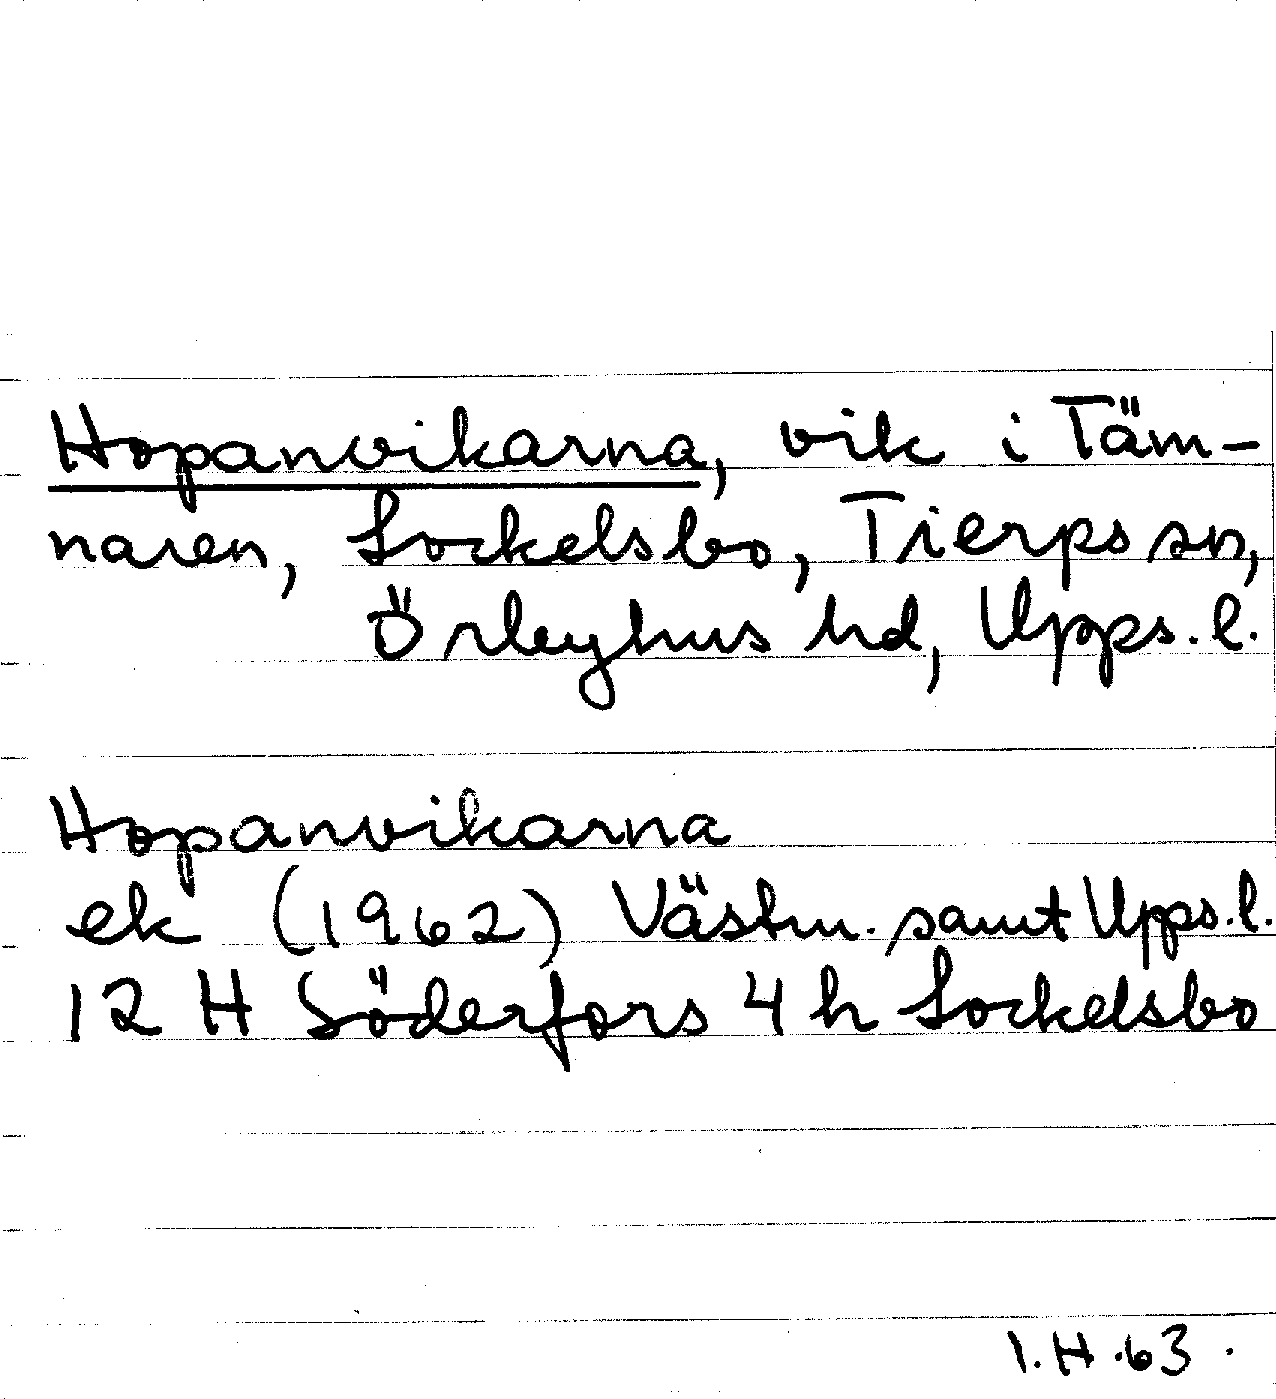 Hopanvikarna, vik i Täm-
naren, Sockelsbo, Tierps sn,
Örbyhus hd, Upps. l.
Hopanvikarna
ek (1962) Västm. samt Upps. l.
12 H Söderfors 4 h Sockelsbo
I. H. 63.